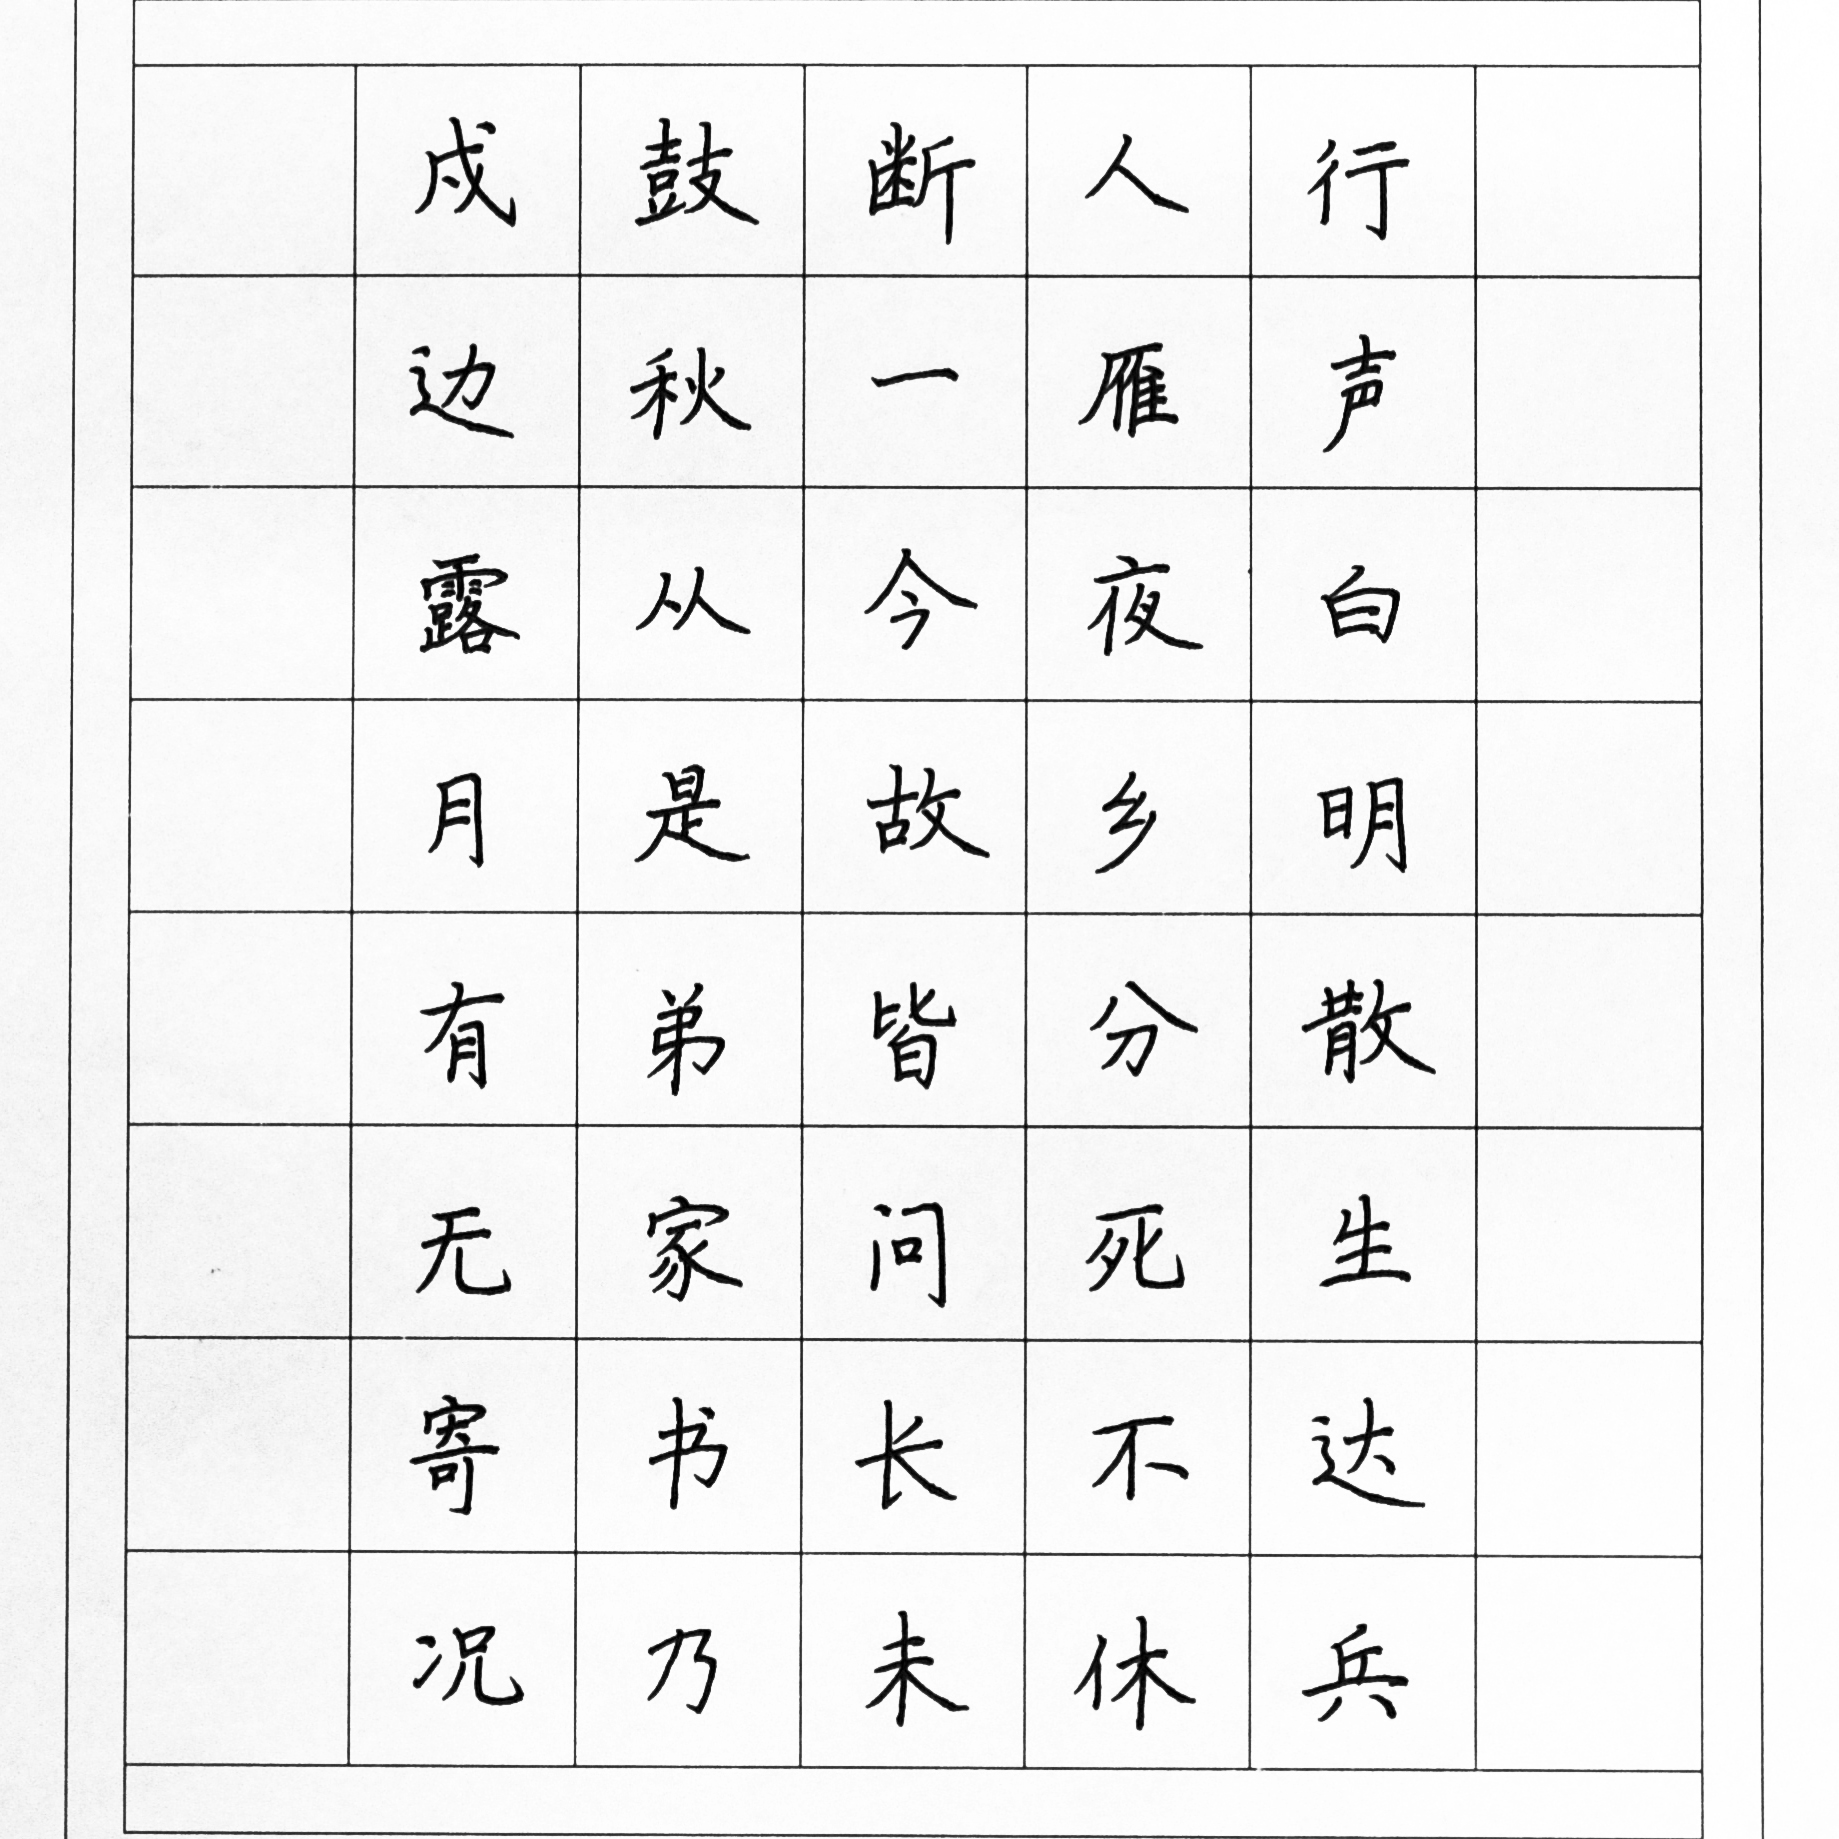 戍鼓断人行
边秋一雁声
露从今夜白
月是故乡明
有弟皆分散
无家问死生
寄书长不达
况乃未休兵